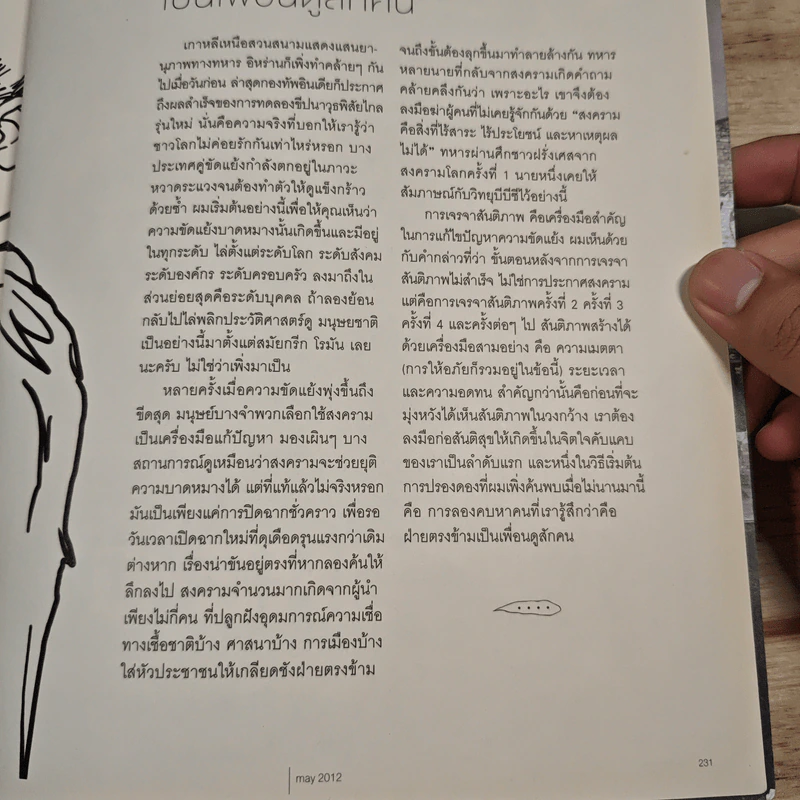 เป็นเพื่อนดูสักคน
เกาหลีเหนือสวนสนามแสดงแสนยา-
นุภาพทางทหาร อิหร่านก็เพิ่งทำคล้ายๆ กัน
ไปเมื่อวันก่อน ล่าสุดกองทัพอินเดียก็ประกาศ
ถึงผลสำเร็จของการทดลองขีปนาวุธพิสัยไกล
รุ่นใหม่ นั่นคือความจริงที่บอกให้เรารู้ว่า
ชาวโลกไม่ค่อยรักกันเท่าไหร่หรอก บาง
ประเทศคู่ขัดแย้งกำลังตกอยู่ในภาวะ
หวาดระแวงจนต้องทำตัวให้ดูแข็งกร้าว
ด้วยซ้ำ ผมเริ่มต้นอย่างนี้เพื่อให้คุณเห็นว่า
ความขัดแย้งบาดหมางนั้นเกิดขึ้นและมีอยู่
ในทุกระดับ ไล่ตั้งแต่ระดับโลก ระดับสังคม
ระดับองค์กร ระดับครอบครัว ลงมาถึงใน
ส่วนย่อยสุดคือระดับบุคคล ถ้าลองย้อน
กลับไปไล่พลิกประวัติศาสตร์ดู มนุษยชาติ
เป็นอย่างนี้มาตั้งแต่สมัยกรีก โรมัน เลย
นะครับ ไม่ใช่ว่าเพิ่งมาเป็น
หลายครั้งเมื่อความขัดแย้งพุ่งขึ้นถึง
ขีดสุด มนุษย์บางจำพวกเลือกใช้สงคราม
เป็นเครื่องมือแก้ปัญหา มองเผินๆ บาง
สถานการณ์ดูเหมือนว่าสงครามจะช่วยยุติ
ความบาดหมางได้ แต่ที่แท้แล้วไม่จริงหรอก
มันเป็นเพียงแค่การปิดฉากชั่วคราว เพื่อรอ
วันเวลาเปิดฉากใหม่ที่ดุเดือดรุนแรงกว่าเดิม
ต่างหาก เรื่องน่าขันอยู่ตรงที่หากลองค้นให้
ลึกลงไป สงครามจำนวนมากเกิดจากผู้นำ
เพียงไม่กี่คน ที่ปลูกฝังอุดมการณ์ความเชื่อ
ทางเชื้อชาติบ้าง ศาสนาบ้าง การเมืองบ้าง
ใส่หัวประชาชนให้เกลียดชังฝ่ายตรงข้าม
จนถึงขั้นต้องลุกขึ้นมาทำลายล้างกัน ทหาร
หลายนายที่กลับจากสงครามเกิดคำถาม
คล้ายคลึงกันว่า เพราะอะไร เขาจึงต้อง
ลงมือฆ่าผู้คนที่ไม่เคยรู้จักกันด้วย “สงคราม
คือสิ่งที่ไร้สาระ ไร้ประโยชน์ และหาเหตุผล
ไม่ได้” ทหารผ่านศึกชาวฝรั่งเศสจาก
สงครามโลกครั้งที่ 1 นายหนึ่งเคยให้
สัมภาษณ์กับวิทยุบีบีซีไว้อย่างนี้
การเจรจาสันติภาพ คือเครื่องมือสำคัญ
ในการแก้ไขปัญหาความขัดแย้ง ผมเห็นด้วย
กับคำกล่าวที่ว่า ขั้นตอนหลังจากการเจรจา
สันติภาพไม่สำเร็จ ไม่ใช่การประกาศสงคราม
แต่คือการเจรจาสันติภาพครั้งที่ 2 ครั้งที่ 3
ครั้งที่ 4 และครั้งต่อๆ ไป สันติภาพสร้างได้
ด้วยเครื่องมือสามอย่าง คือ ความเมตตา
(การให้อภัยก็รวมอยู่ในข้อนี้) ระยะเวลา
และความอดทน สำคัญกว่านั้นคือก่อนที่จะ
มุ่งหวังได้เห็นสันติภาพในวงกว้าง เราต้อง
ลงมือก่อสันติสุขให้เกิดขึ้นในจิตใจคับแคบ
ของเราเป็นลำดับแรก และหนึ่งในวิธีเริ่มต้น
การปรองดองที่ผมเพิ่งค้นพบเมื่อไม่นานมานี้
คือ การลองคบหาคนที่เรารู้สึกว่าคือ
ฝ่ายตรงข้ามเป็นเพื่อนดูสักคน
may 2012
231